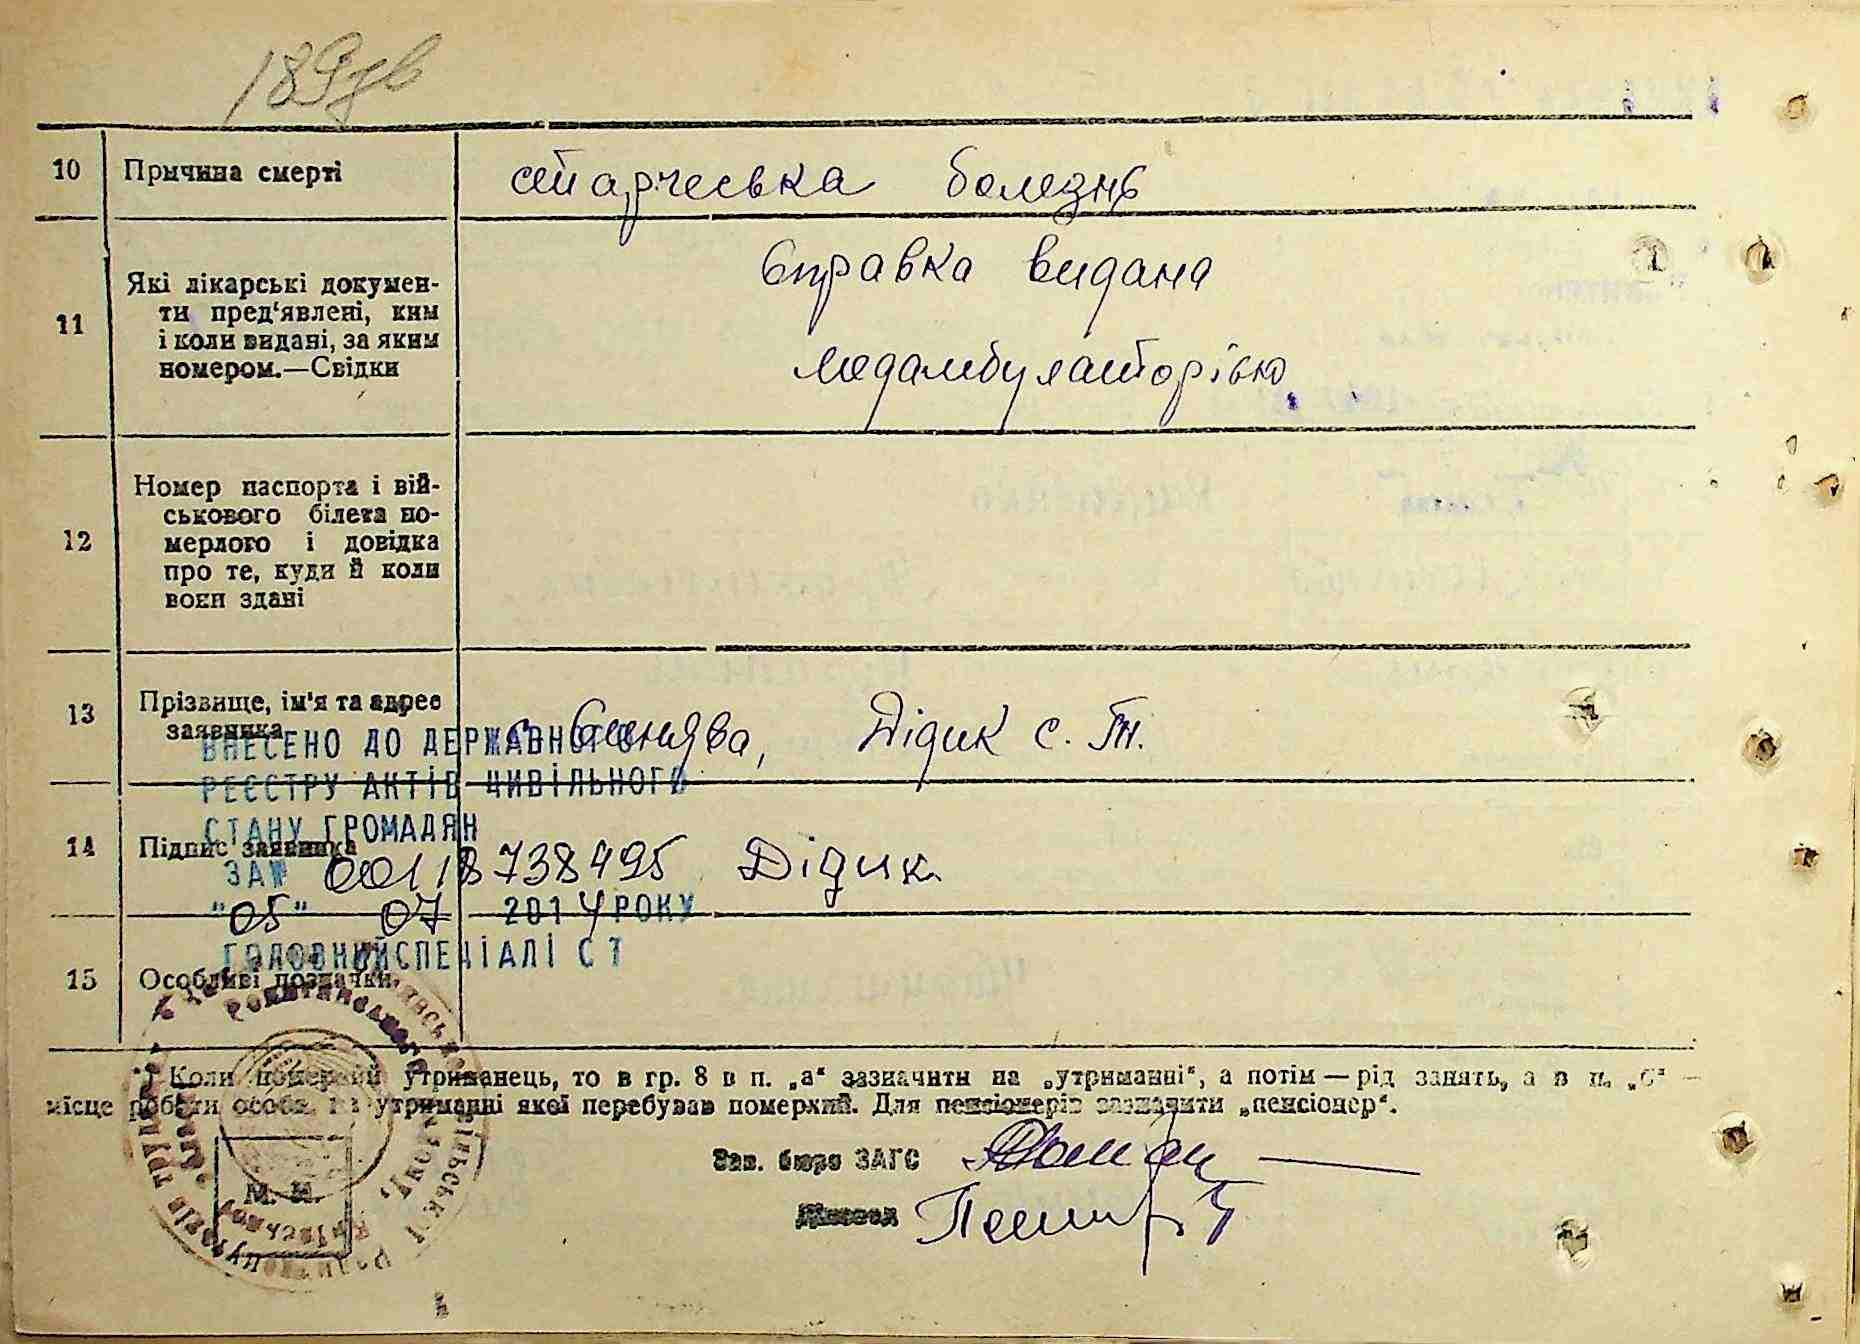 10 Причина смерті старческа болезнь
11 Які лікарські докумен-
ти пред‘явлені, ким
і коли видані, за яким
номером.—Свідки
Справка видана
медамбулаторією
12 Номер паспорта і вій-
ськового білета по-
мерлого і довідка
про те, куди й коли
вони здані
13 Прізвище, ім'я та адрес
заявника
с. Синява, Дідик С. Гн.
ВНЕСЕНО ДО ДЕРЖАВНОГО
РЕЄСТРУ АКТІВ ЦИВІЛЬНОГО
СТАНУ ГРОМАДЯН
14 Підпис заявника Дідик
ЗА № 00118738495
"05" 07 2014 РОКУ
ГОЛОВНИЙ СПЕЦІАЛІСТ
15 Особливі позначки
* Коли померлий утриманець, то в гр. 8 в п. „а“ зазначити на „утриманні“, а потім — рід занять, а в п. „б“ —
місце роботи особи, на утриманні якої перебував померлий. Для пенсіонерів зазначити „пенсіонер“.
Зав. бюро ЗАГС
М. П.
Діловод